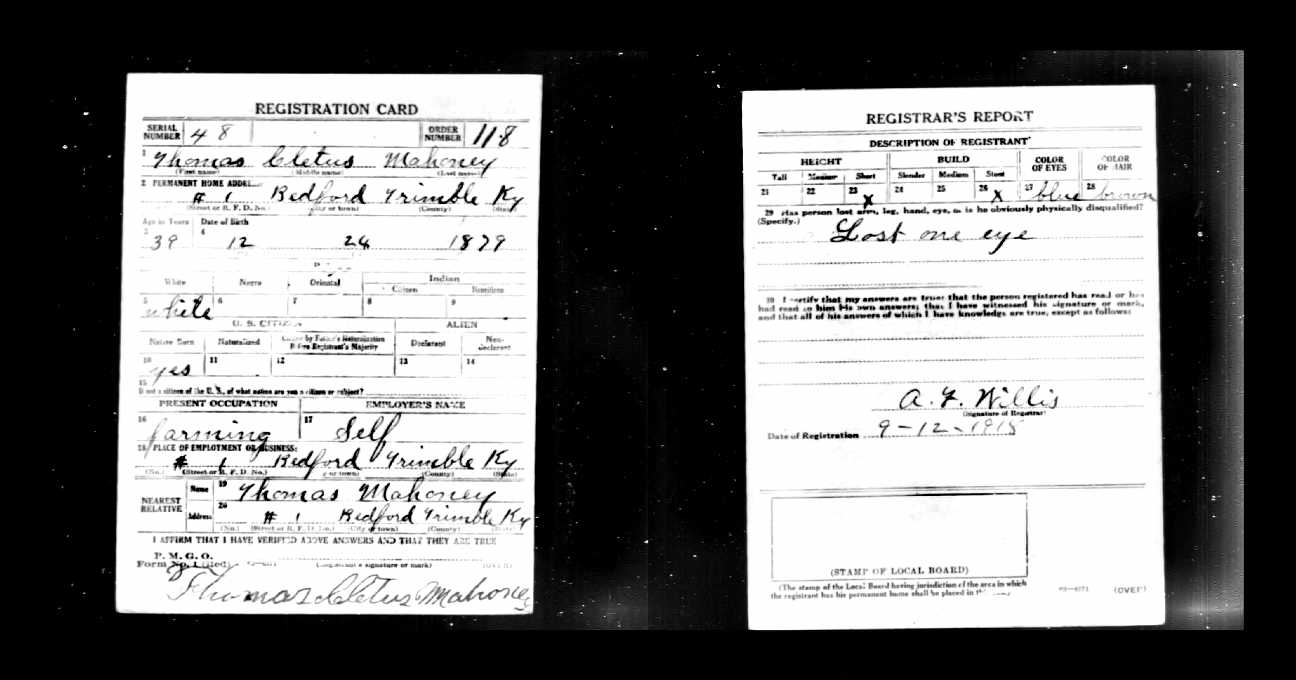 REGISTRATION CARD
SERIAL NUMBER 48 ORDER NUMBER 118
1 Thomas Cletus Mahoney
(First name) (Middle name) (Last name)
2 PERMANENT HOME ADDRESS
# 1 Bedford Trimble Ky
(Street or R. F. D. No.) (City or town) (County) (State)
Age in Years Date of Birth
3 39 4 12 24 1879
White Negro Oriental Indian
Citizen Noncitizen
5 white 6 7 8 9
U. S. CITIZEN ALIEN
Native Born Naturalized Citizen by Father's Naturalization Before Registrant's Majority Declarant Non-declarant
10 yes 11 12 13 14
15 If not a citizen of the U. S., of what nation are you a citizen or subject?
PRESENT OCCUPATION EMPLOYER'S NAME
16 farming 17 Self
18 PLACE OF EMPLOYMENT OR BUSINESS:
# 1 Bedford Trimble Ky
(No.) (Street or R. F. D. No.) (City or town) (County) (State)
NEAREST RELATIVE Name 19 Thomas Mahoney
Address 20 # 1 Bedford Trimble Ky
(No.) (Street or R. F. D. No.) (City or town) (County)
I AFFIRM THAT I HAVE VERIFIED ABOVE ANSWERS AND THAT THEY ARE TRUE
P. M. G. O.
Form No. 1 (Red) (Registrant's signature or mark) (OVER)
Thomas Cletus Mahoney
REGISTRAR'S REPORT
DESCRIPTION OF REGISTRANT
HEIGHT BUILD COLOR OF EYES COLOR OF HAIR
Tall Medium Short Slender Medium Stout
21 22 23 x 24 25 26 x 27 blue 28 brown
29 Has person lost arm, leg, hand, eye, or is he obviously physically disqualified?
(Specify.) Lost one eye
30 I certify that my answers are true; that the person registered has read or has
had read to him his own answers; that I have witnessed his signature or mark,
and that all of his answers of which I have knowledge are true, except as follows:
A. F. Willis
(Signature of Registrar)
Date of Registration 9-12-1918
(STAMP OF LOCAL BOARD)
(The stamp of the Local Board having jurisdiction of the area in which
the registrant has his permanent home shall be placed in
(OVER)